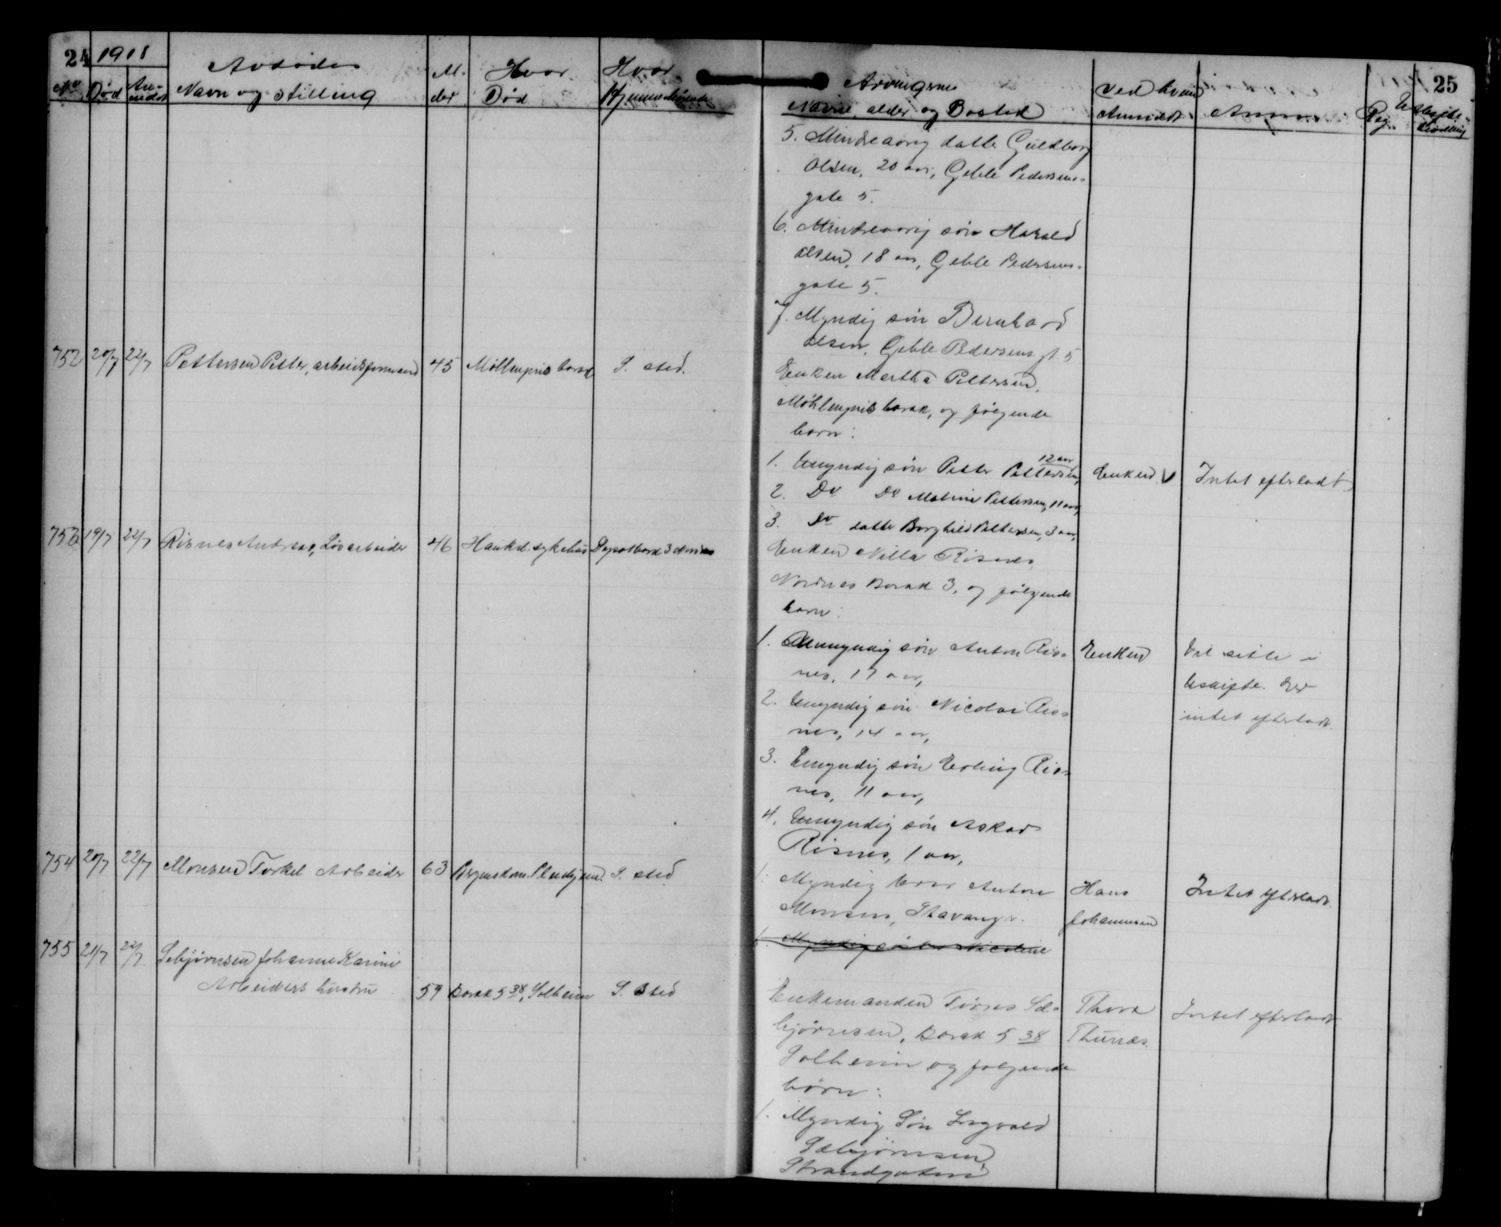 24 1918
No. Død An-meldt Avdødes Navn og stilling Al-der Hvor Død Hvor Hjemmehørende
752 20/7 22/7 Pettersen Petter, arbeidsformand 45 Møhlenpris barak S. sted.
753 19/7 22/7 Risnes Andreas, Løsarbeider 46 Haukel. sykehus Nordnes
754 20/7 22/7 Monsen Torkel Arbeider 63 S. sted
755 21/7 22/7 Sebjørnsen Johanne Karine
Arbeiders hustru 59 Barak 5 38, Solheim S. Sted
25
Arvingernes Navne, alder og Bosted ved hvem Anmeldt Anm.
5. Mindreaarig datte Guldborg
Olsen, 20 aar, Geble Pedersens-
gate 5.
6. Mindreaarig søn Harald
Olsen, 18 aar, Geble Pedersens-
gate 5.
7. Myndig søn Bernhard
Olsen, Geble Pedersens gt 5
Enken Martha Pettersen,
Møhlenpris barak, og følgende
barn:
1. Umyndig søn Petter Pettersen, 12 aar Enken V Intet efterladt
2. Do Do Pettersen, 11 aar,
3. Do datte Borghild Pettersen, 3 aar,
Enken Nilla Risnes
Nordnes Barak 3, og følgende
barn:
1. Umyndig søn Anton Ris-
nes, 17 aar, Enken Vil sitte i
uskifte. Er
intet efterladt.
2. Umyndig søn Nicolai Ris-
nes, 14 aar,
3. Umyndig søn Erling Ris-
nes, 11 aar,
4. Umyndig søn Askar
Risnes, 1 aar,
1. Myndig bror Anton
Monsen, Stavanger. Hans
Johannesen Intet efterladt
Enkemanden Tørres Se-
bjørnsen, barak 5 38
Solheim og følgende
børn: Thora
Thunæs Intet efterladt
1. Myndig Søn Ingvald
Sebjørnsen,
Strandgaten